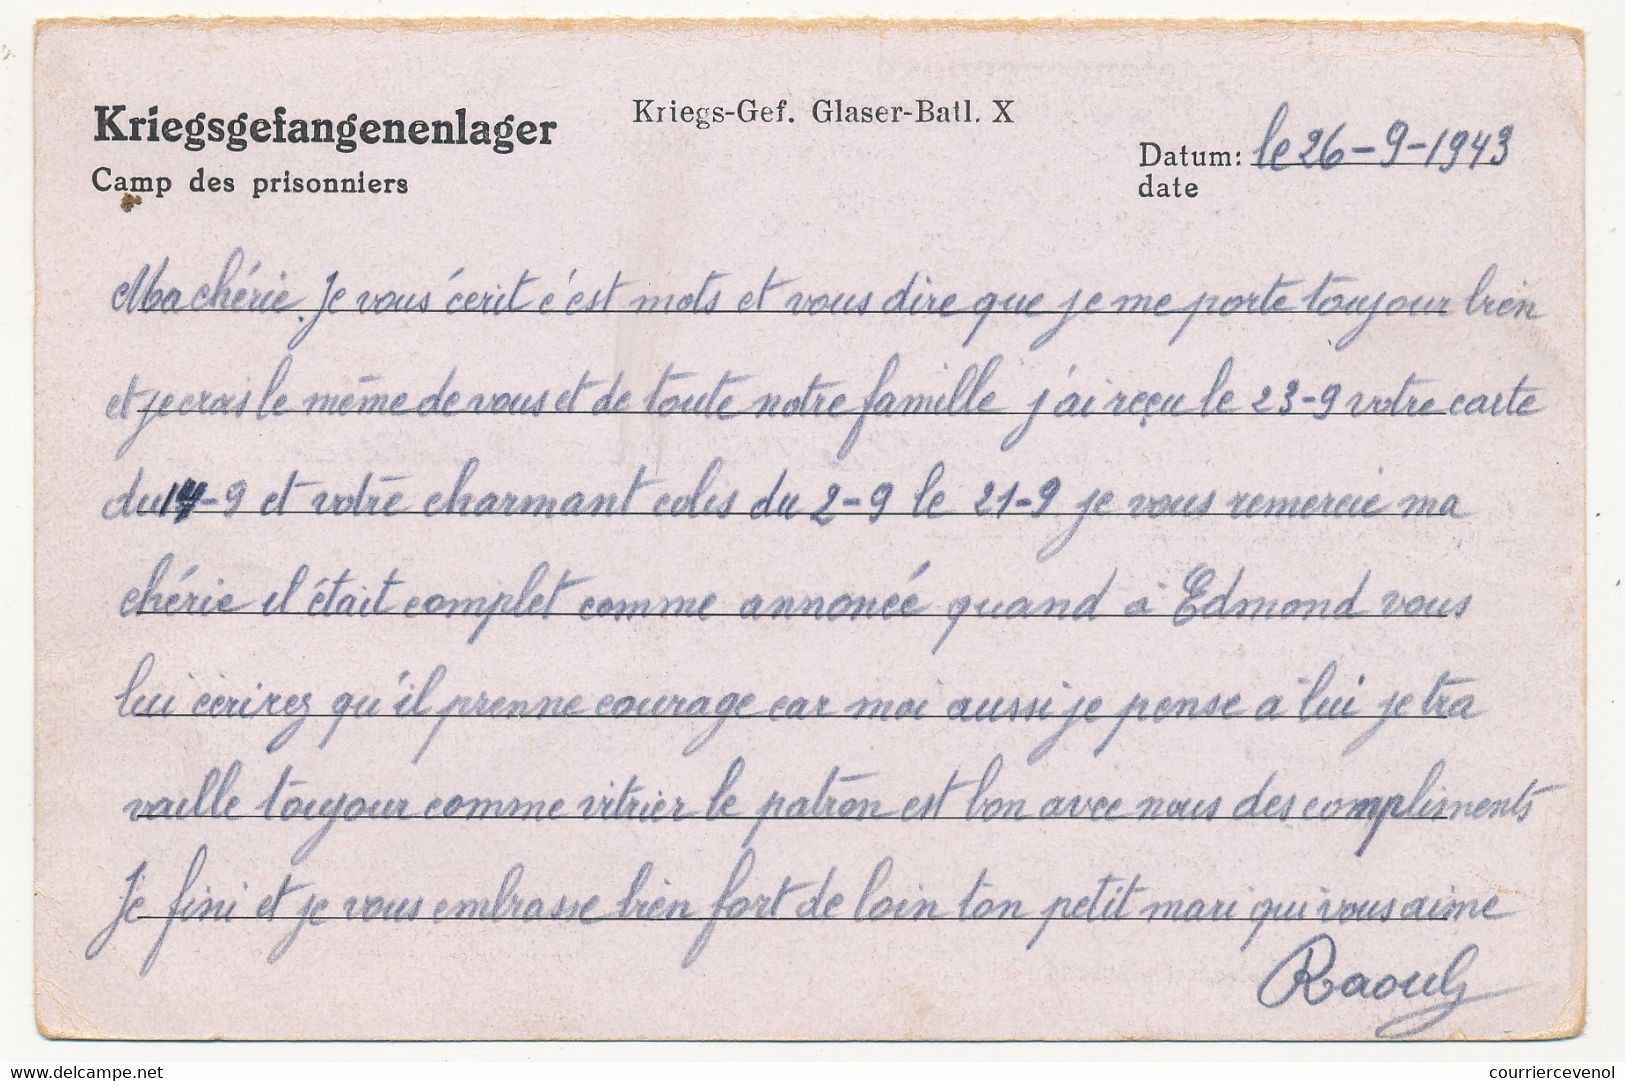 Kriegsgefangenenlager
Camp des prisonniers
Kriegs-Gef. Glaser-Batl. X
Datum: le 26-9-1943
date
Ma chérie. Je vous écrit c'est mots et vous dire que je me porte toujour bien
et je crois le même de vous et de toute notre famille j'ai reçu le 23-9 votre carte
du 14-9 et votre charmant colis du 2-9 le 21-9 je vous remercie ma
chérie il était complet comme annoncé quand à Edmond vous
lui écrirez qu'il prenne courage car moi aussi je pense a lui je tra
vaille toujour comme vitrier le patron est bon avec nous des compliments
Je fini et je vous embrasse bien fort de loin ton petit mari qui vous aime
Raoul
delcampe.net
courriercevenol